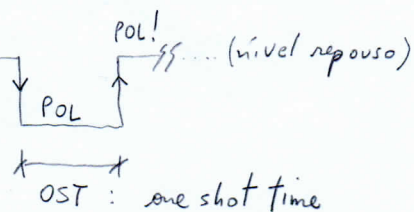 POL!
(nível repouso)
POL
OST : one shot time